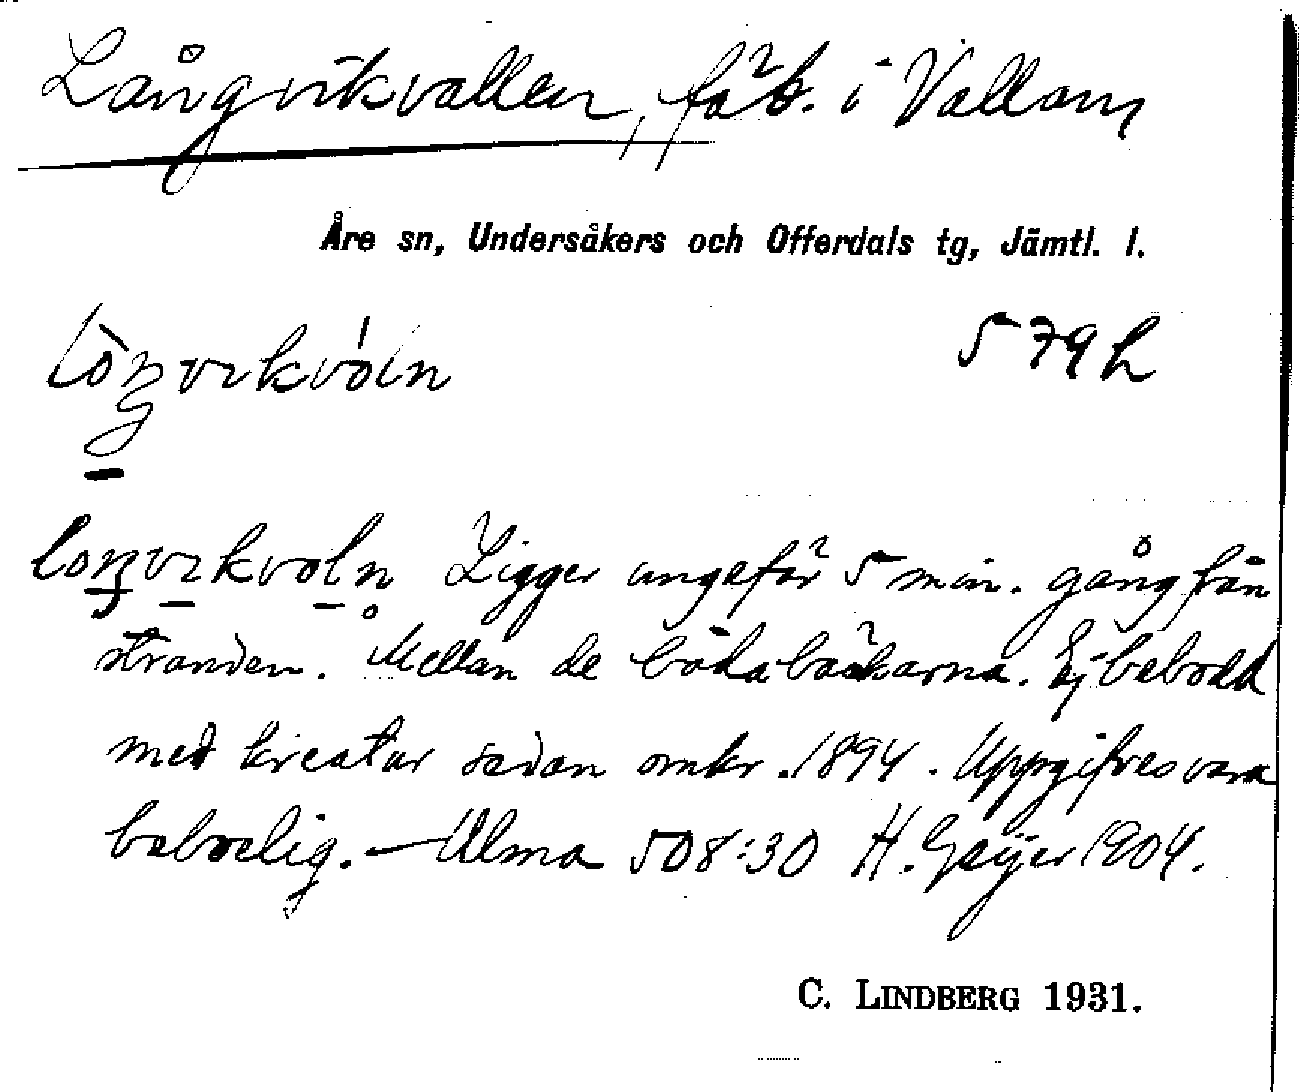 Långvikvallen, fäb. i Vallam,
Åre sn, Undersåkers och Offerdals tg, Jämtl. l.
579 h
Ligger ungefär 5 min. gång från
stranden. Mellan de båda bäckarna. Ej bebodd
med kreatur sedan omkr. 1894. Uppgifves vara
beboelig. — Ulma 508:30 H. Geijer 1904.
C. LINDBERG 1931.